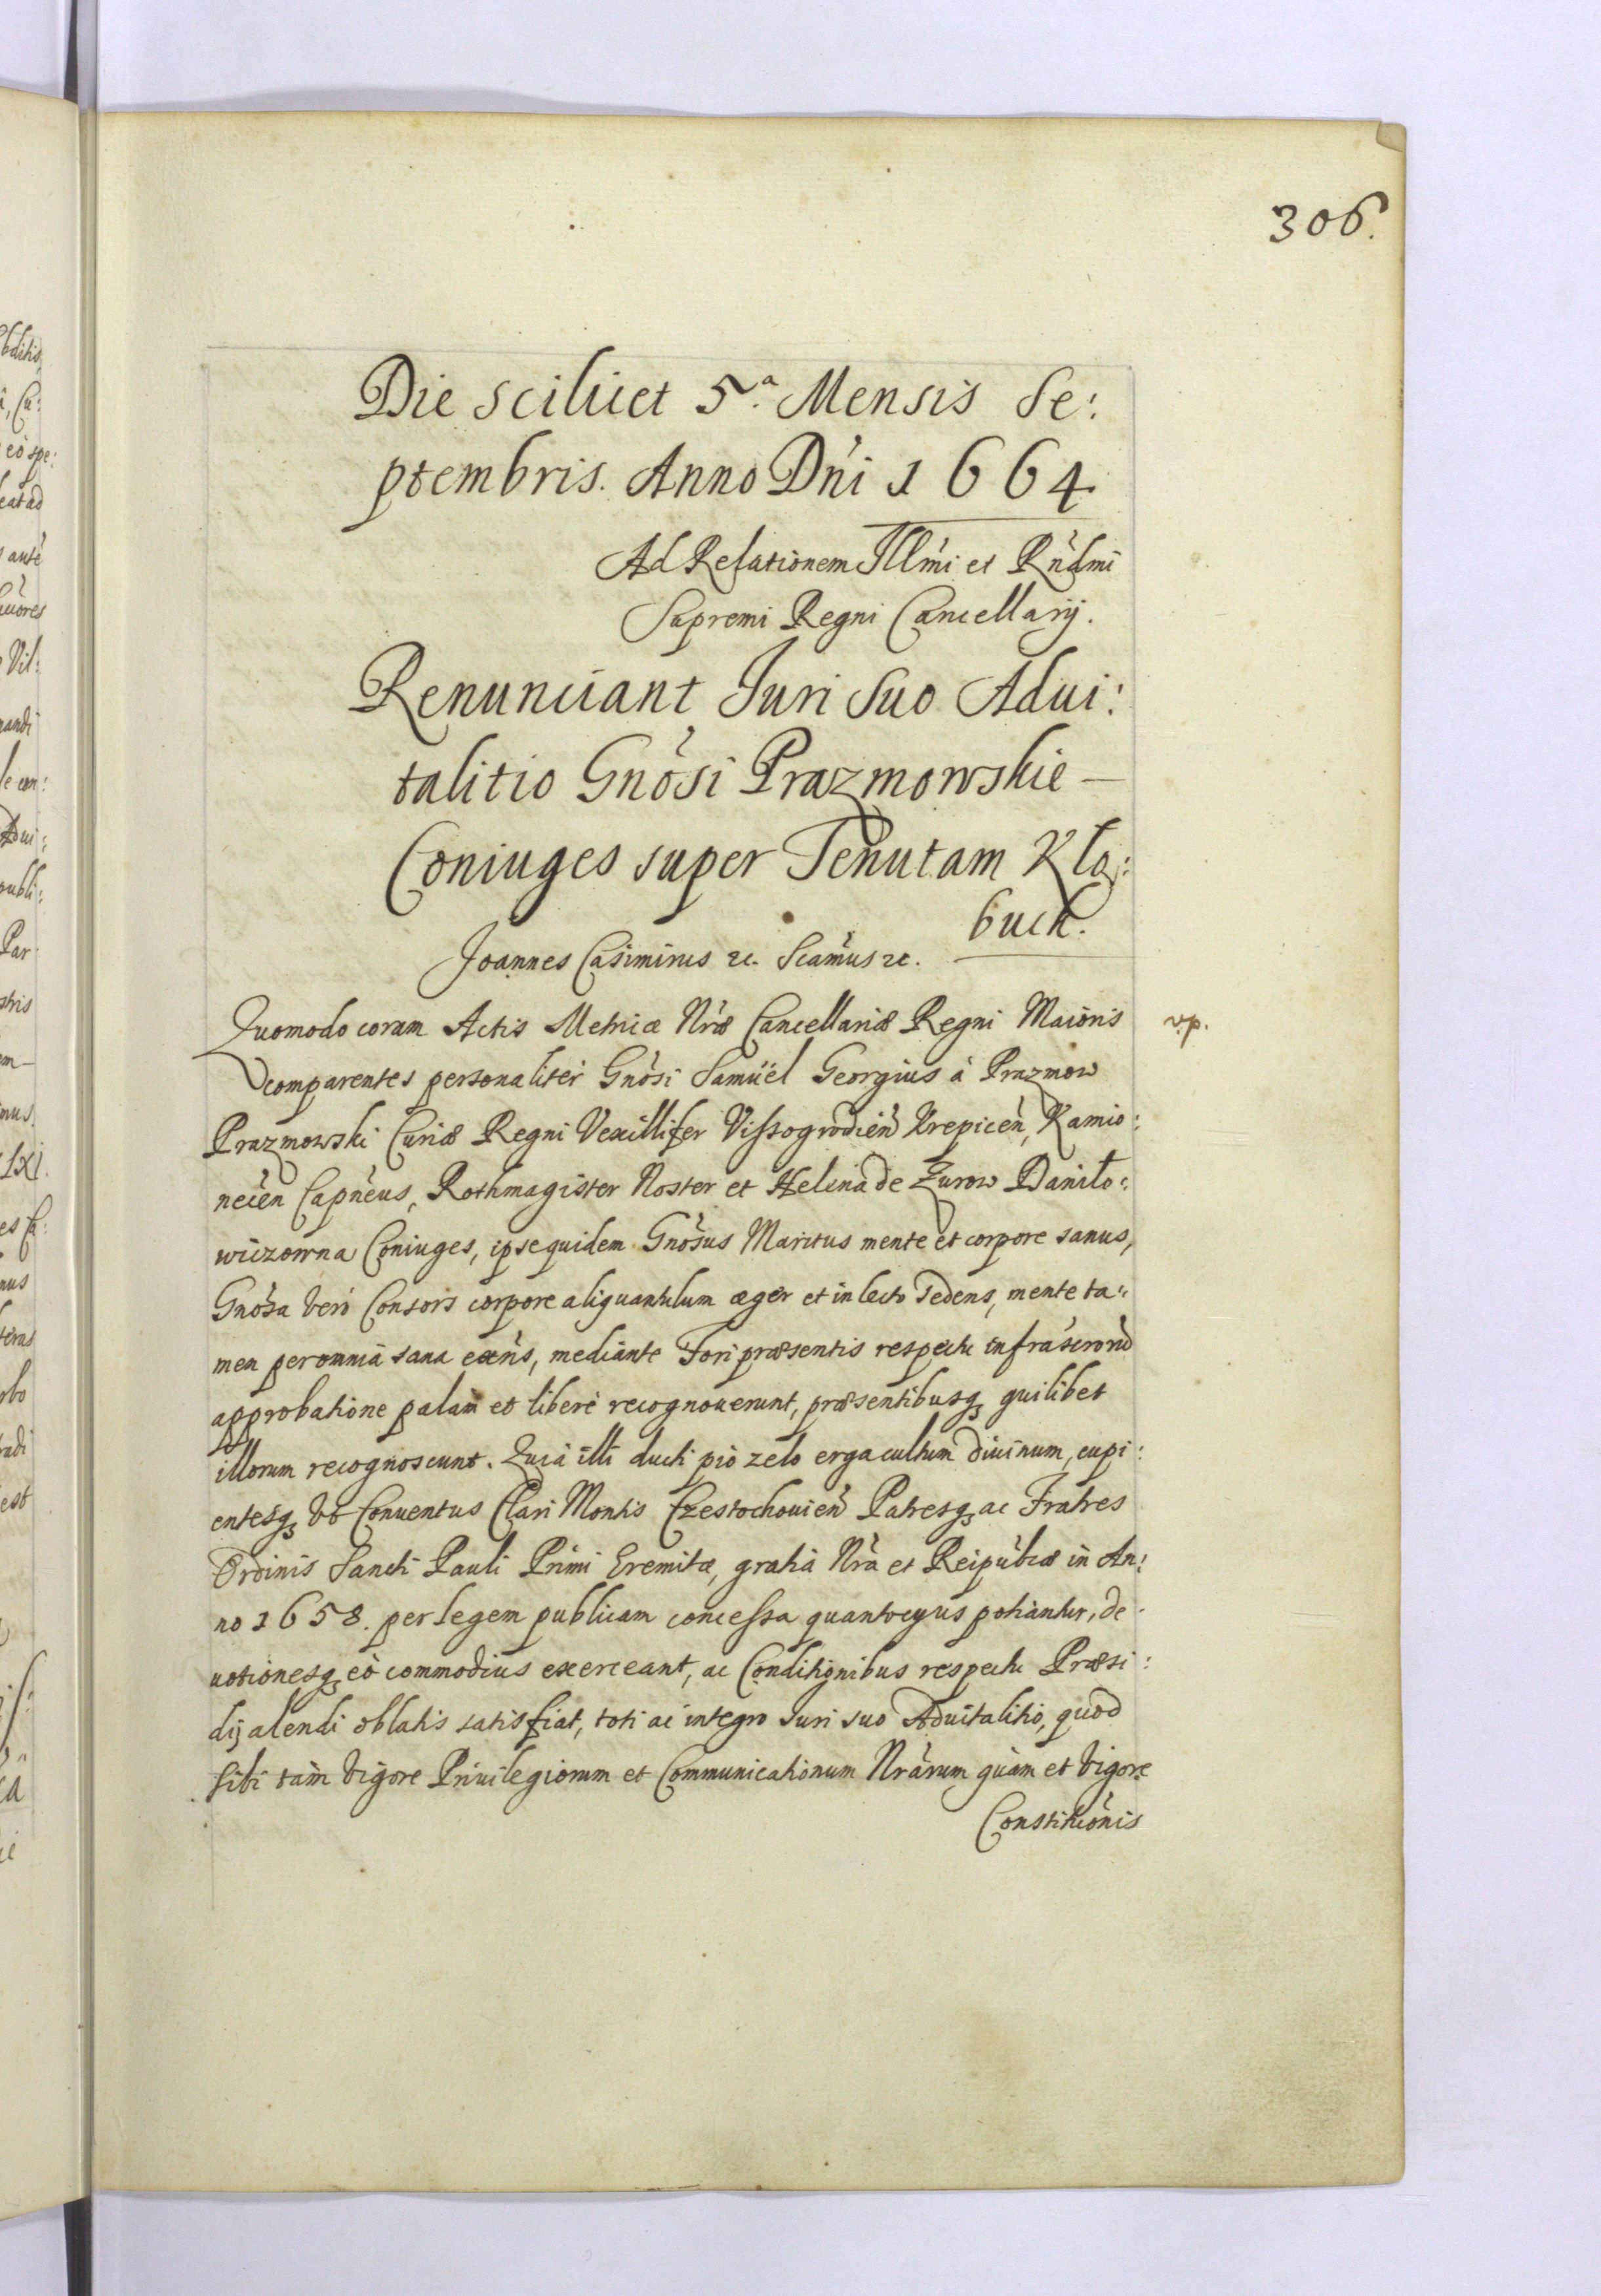 306.
Die scilicet 5.ª Mensis Se:
ptembris. Anno Dńi 1664
Ad Relationem Illmi et Rndmi
Supremi Regni Cancellarij.
Renunciant Iuri Suo Adui:
talitio Gnosi Prazmowskie —
Coniuges super Tenutam Kło:
buck.
Joannes Casimirus etc. Scamus etc.
Quomodo coram Actis Metricæ Nræ Cancellariæ Regni Maioris v.p.
comparentes personaliter Gnosi Samuel Georgius à Prazmow
Prazmowski Curiæ Regni Vexillifer Vissogrodien Krepicen, Kamio:
necen Capneus, Rothmagister Noster et Helena de Zurow Daniło:
wiczowna Coniuges, ipse quidem Gnosus Maritus mente et corpore sanus,
Gnosa vero Consors corpore aliquantulum æger et in lecto sedens, mente ta:
men per omnia sana exens, mediante Fori præsentis respectu infrascrorum
approbatione palam et libere recognouerunt, præsentibusq quilibet
illorum recognoscunt. Quia illi ducti pio zelo erga cultum diuinum, cupi:
entesq vt Conuentus Clari Montis Czestochouien Patresq ac Fratres
Ordinis Sancti Pauli Primi Eremitæ, gratia Nra et Reipublcæ in An:
no 1658. per legem publicam concessa quantocyus potiantur, de:
uotionesq eò commodius exerceant, ac Conditionibus respectu Præsi:
dij alendi oblatis satisfiat, toti ac integro Iuri suo Aduitalitio, quod
sibi tam vigore Priuilegiorum et Communicationum Nrarum quam et vigore
Constitucionis